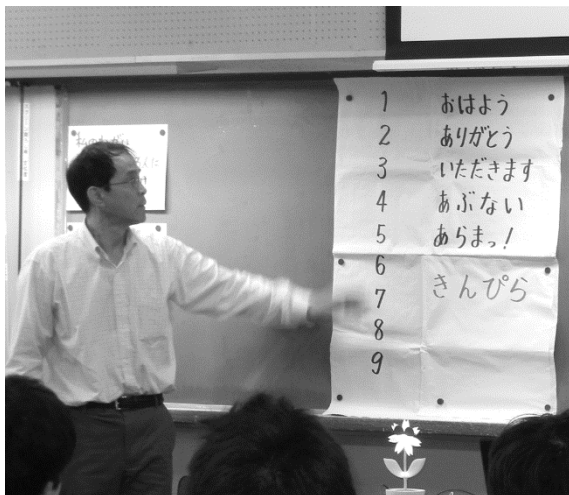 1 おはよう
2 ありがとう
3 いただきます
4 あぶない
5 あらまっ!
6
7 きんぴら
8
9